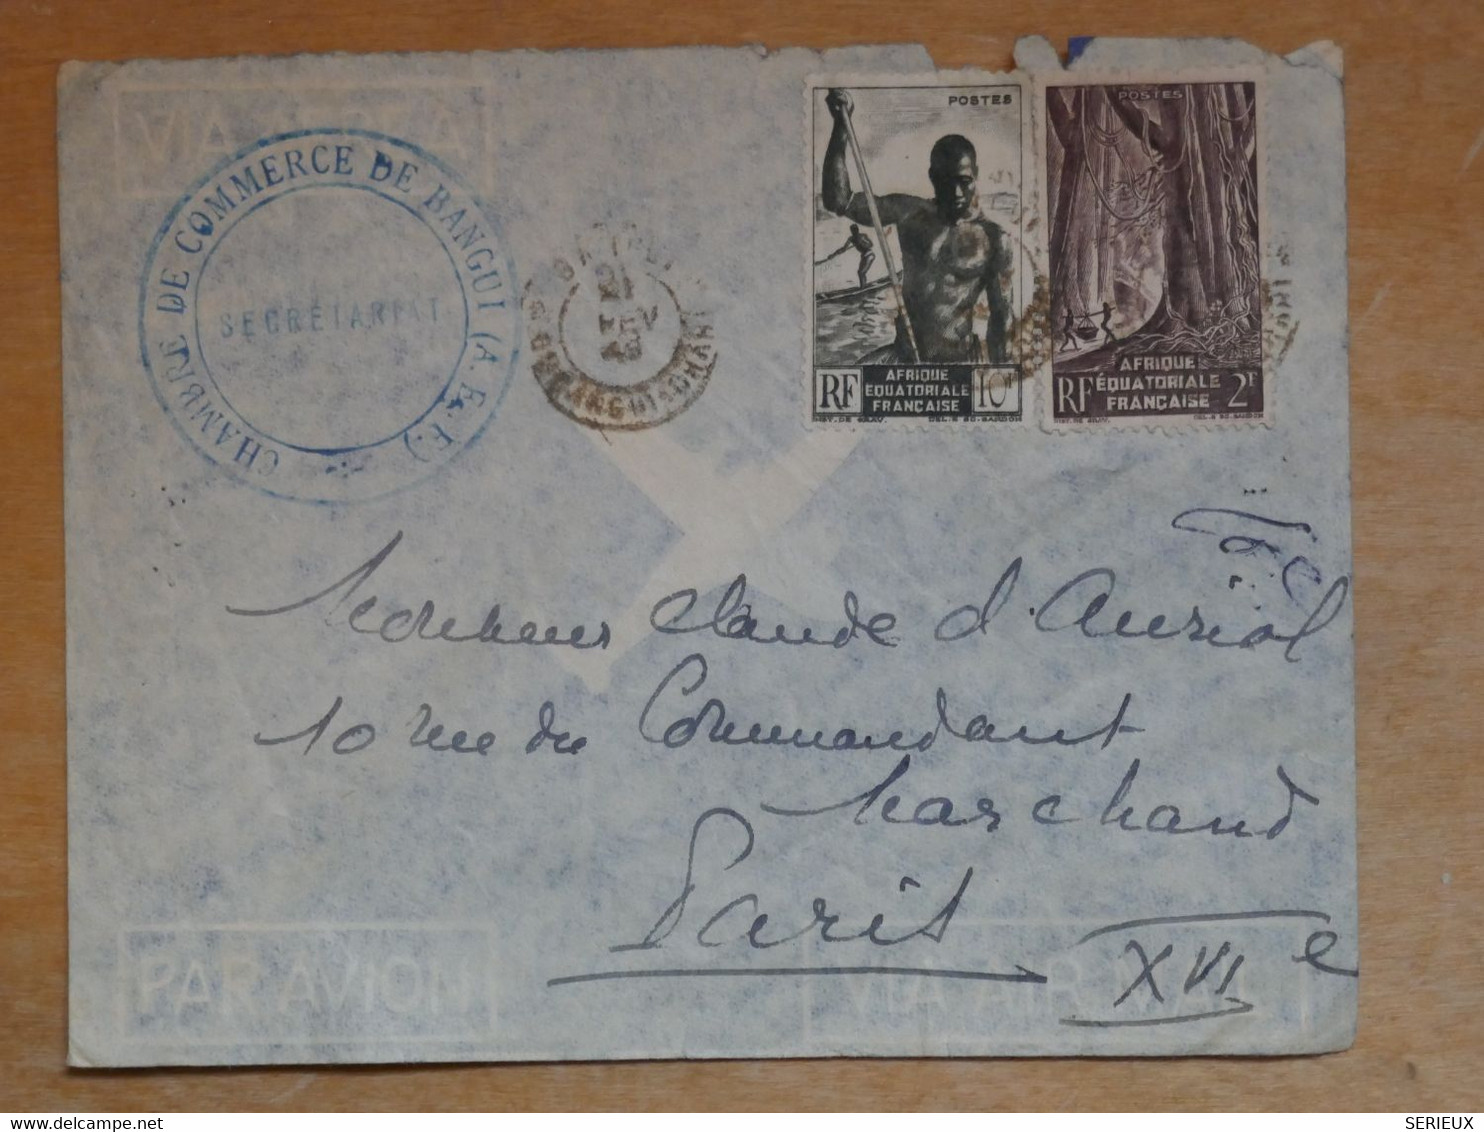 CHAMBRE DE COMMERCE DE BANGUI (A.E.F.)
SECRÉTARIAT
POSTES
RF AFRIQUE ÉQUATORIALE FRANÇAISE 10F
POSTES
RF AFRIQUE ÉQUATORIALE FRANÇAISE 2F
Monsieur Claude d'Auriol
10 rue du Commandant
Marchand
Paris XVIe
PAR AVION
VIA AIR MAIL
SERIEUX